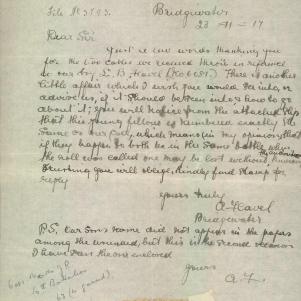 File No 3793.
Bridgewater
23-11-17
Dear Sir
Just a few words thanking you
for the two cables we received there in reference
to our boy, L. B. Havel (No 6681). There is another
little affair which I wish you would go into, or
advise us, if it should be seen into & how to go
about it; you will notice from the attached slip
that this young fellow is numbered exactly the
same as our lad, which means in my opinion, that
if they happen to both be in the same battle, when
the roll was called one may be lost without knowing
Trusting you will oblige, kindly find stamp for
reply
yours truly
A Havel
Bridgewater
P.S, Our Son's name did not appear in the papers
among the wounded, but this is the second occasion
I have seen the one enclosed
yours
A